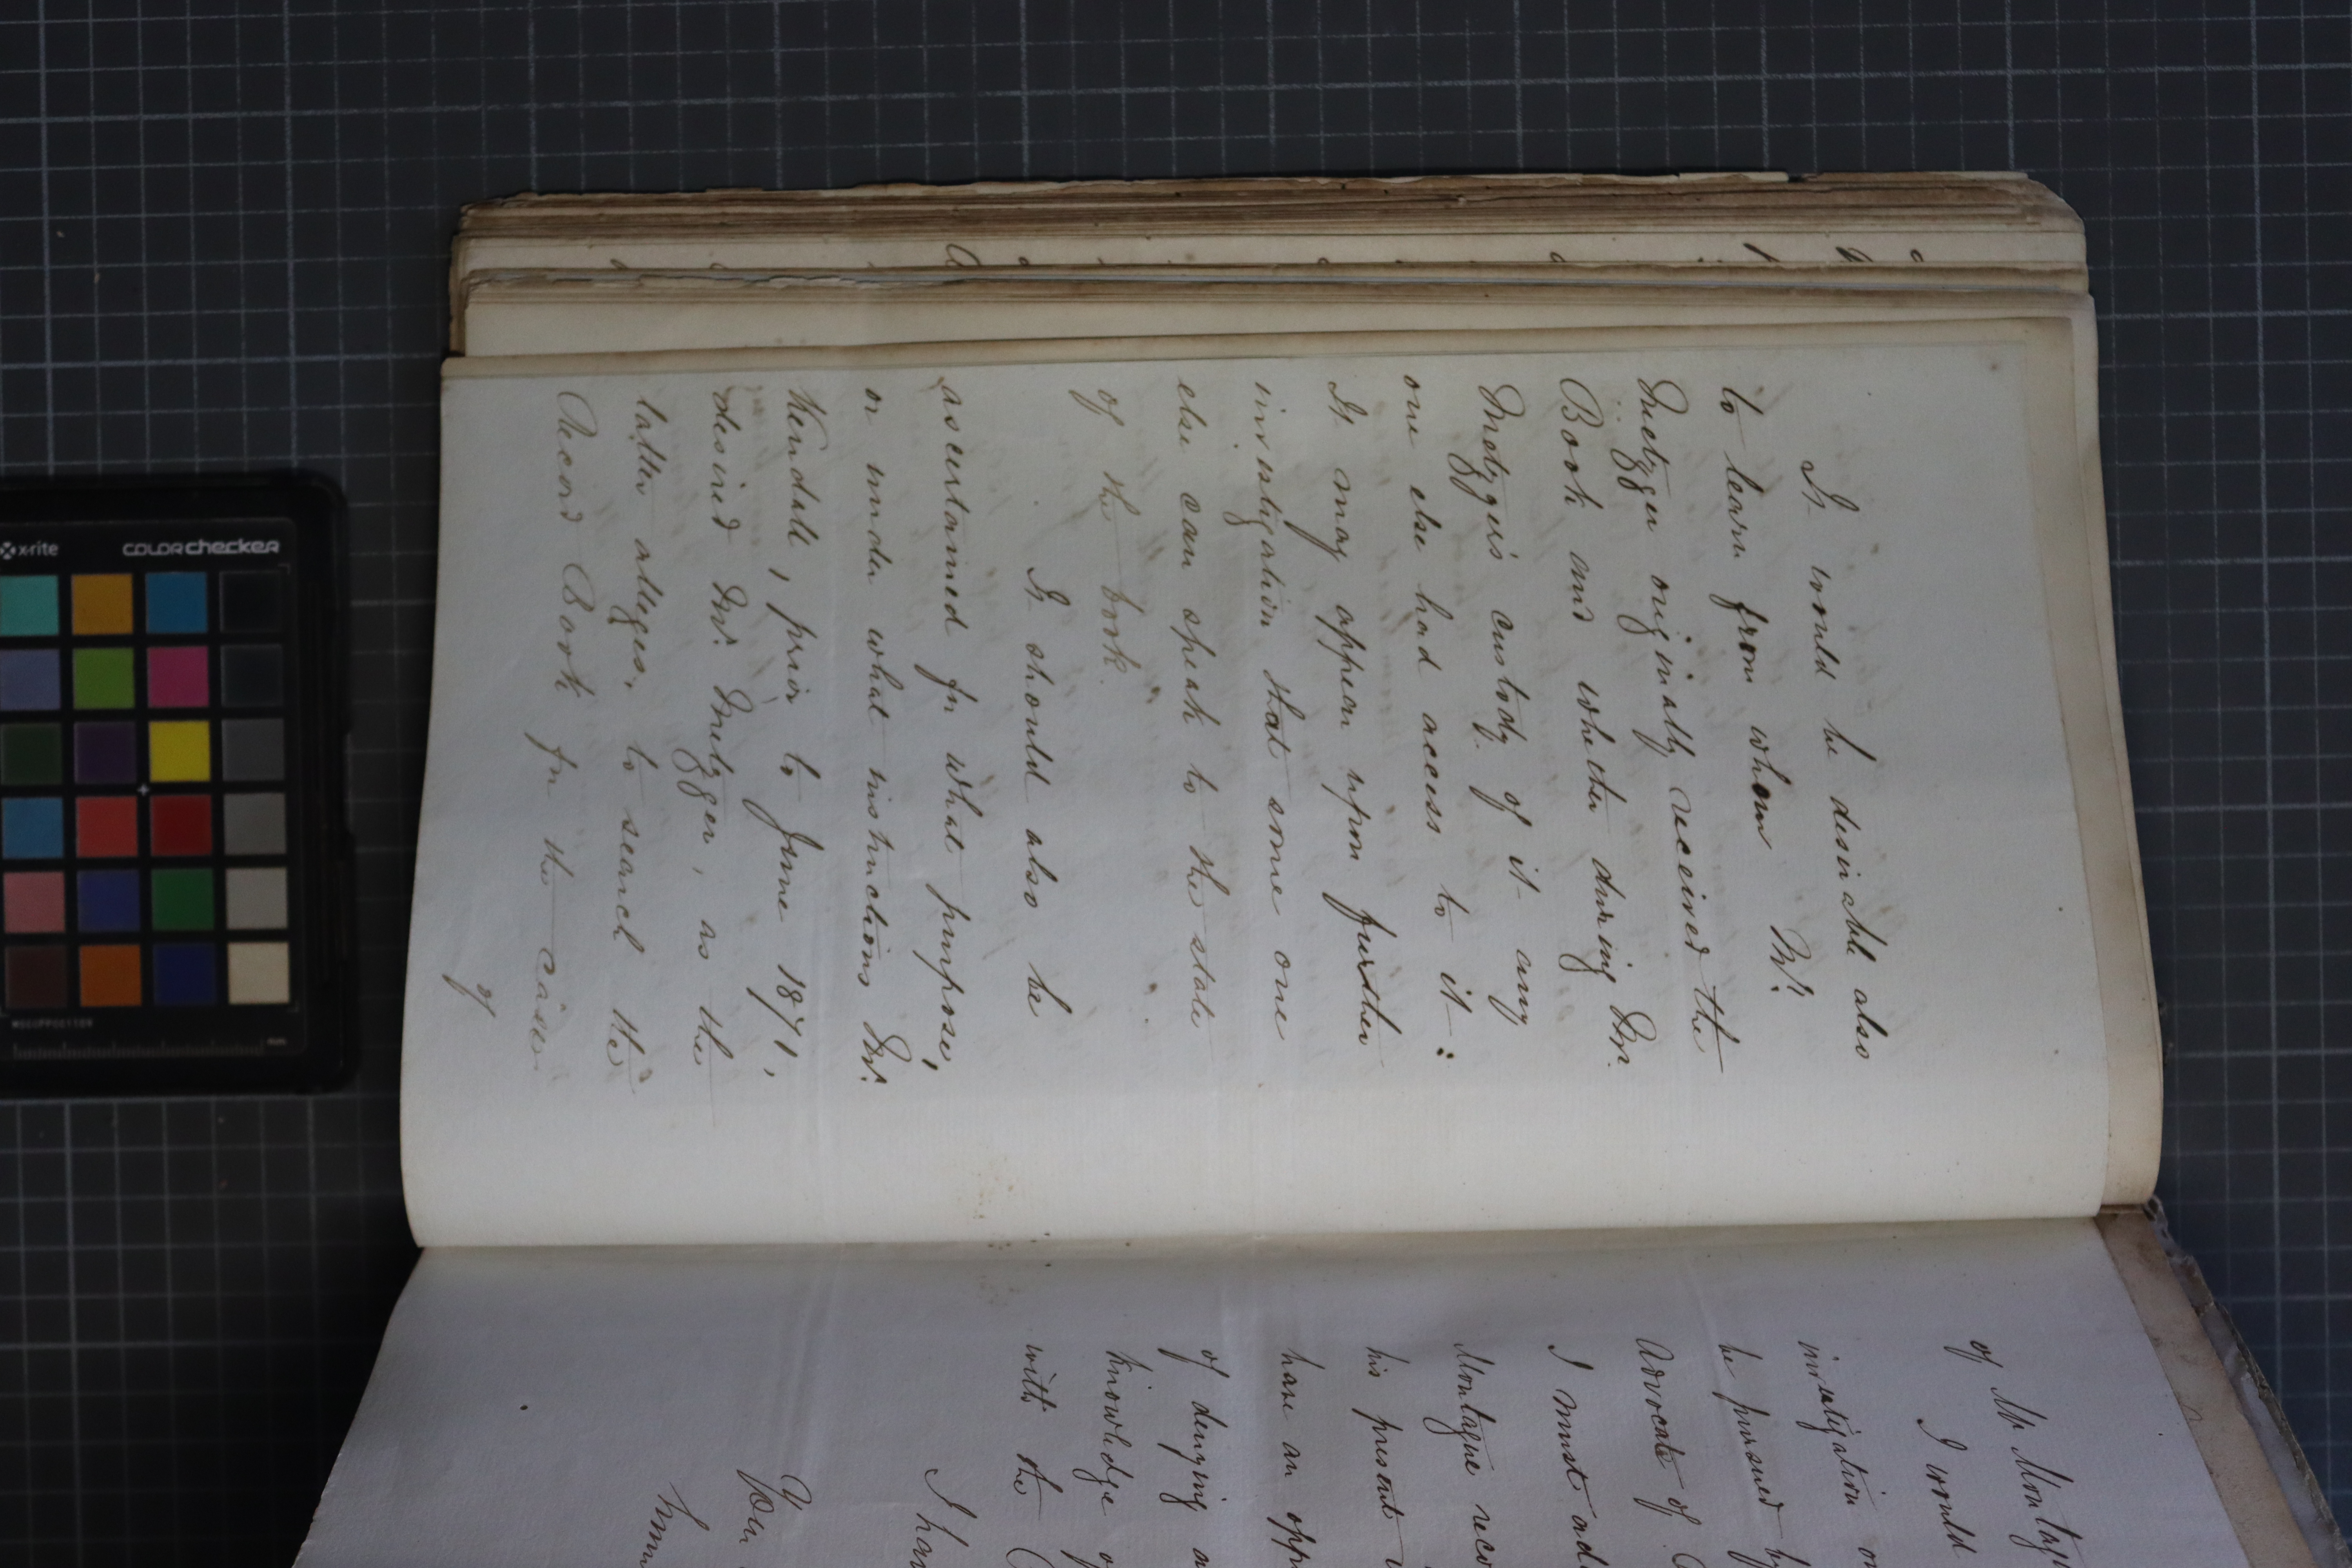 It would be desirable also
to learn from whom Mr.
Metzger originally received the
Book and whether during Mr.
Metzger's custody of it any
one else had access to it:
It may appear upon further
investigation that some one
else can speak to the state
of the book.
It should also be
ascertained for what purpose,
or under what instructions Mr.
Kendall, prior to June 1871,
desired Mr. Metzger, as the
latter alleges, to search the
Record Book for the cases
of
of Mr Montag
I would
investigation
be pursued by
Advocate of
I must ad
Montague reco
his present
have an opp
of denying a
knowledge of
with the
I hav
You
x-rite
colorchecker